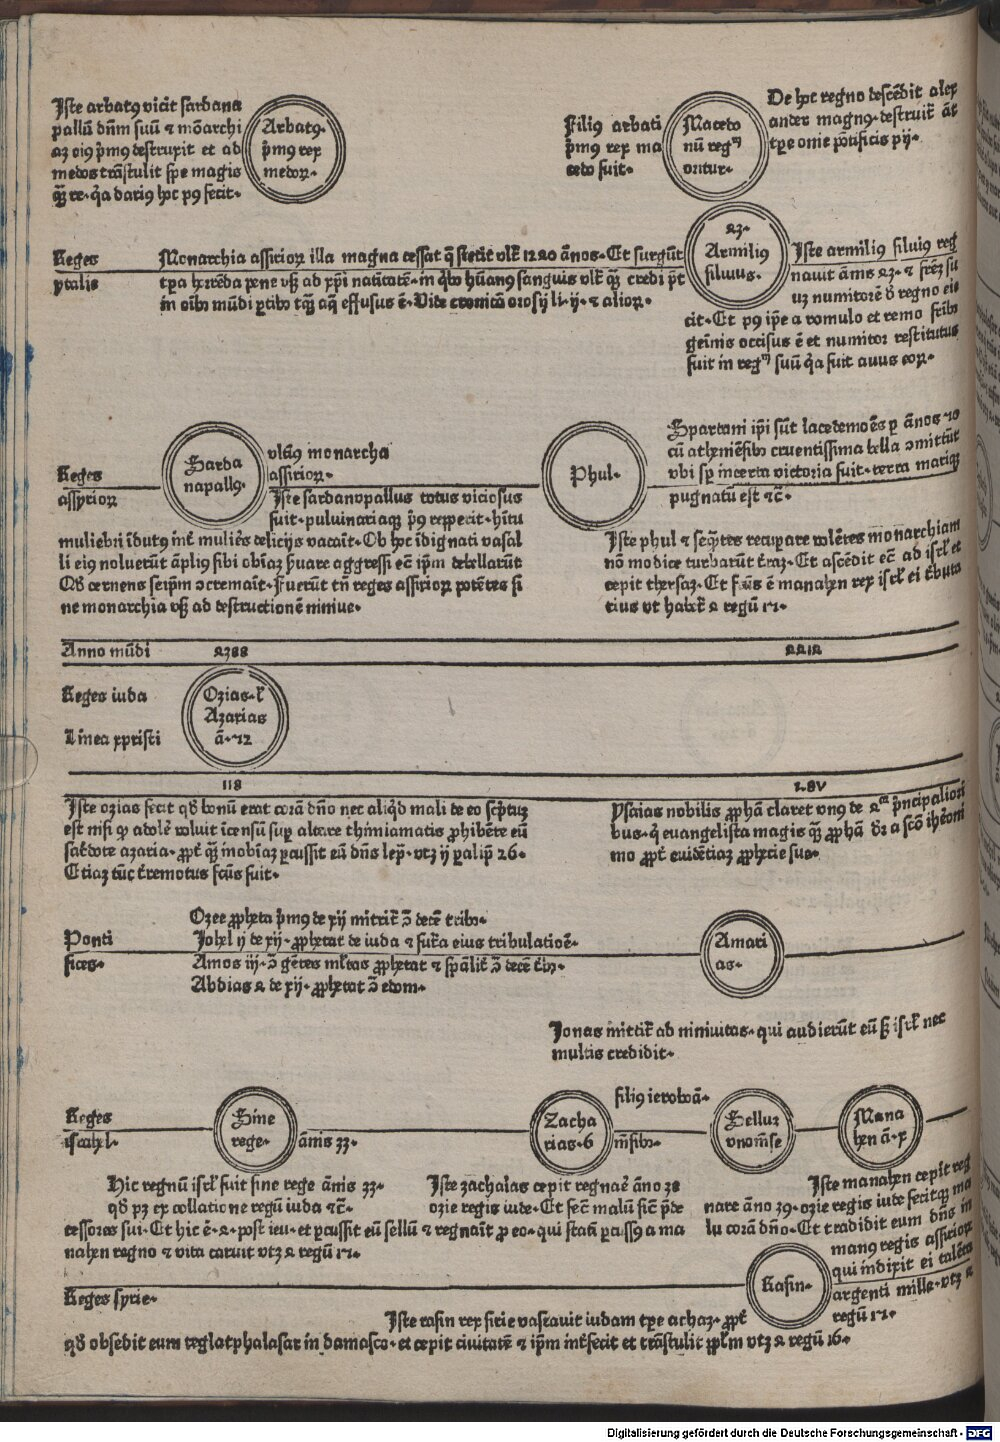 Iste arbatꝰ vicit sardana
pallū dn̄m suū ⁊ mōarchi
aꝫ eiꝰ pͥmꝰ destruxit et ad
medos trāstulit spe magis
qͣꝫ re. qͥa dariꝰ hoc pꝰ fecit.
Arbatꝰ.
pͥmꝰ rex
medoꝝ.
Filiꝰ arbati
pͥmꝰ rex ma
cedo fuit.
Macedo
nū regᵐ
oritur.
De hoc regno descēdit alex
ander magnꝰ. destruit̄ āt
tꝑe onie pōtificis pij.
Reges
ytalis
Monarchia assirioꝝ illa magna cessat q̄ stetit vlt̄ 1220 ānos. Et surgūt
tꝑa horrēda pene vsqꝫ ad xp̄i natiuitatē. in qͥbꝰ hūanꝰ sanguis vlt̄ qͣꝫ credi pōt
in oībꝰ mūdi ꝑtibꝰ tāqͣꝫ aqͣ effusus ē. Vide cronicā orosij li. ij. ⁊ alioꝝ.
23.
Armiliꝰ
siluius.
Iste armiliꝰ siluiꝰ reg
nauit ānis 23. ⁊ frēꝫ su
uꝫ numitorē de regno eie
cit. Et pꝰ ipē a romulo et remo frībꝰ
gemīnis occisus ē et numitor restitutus
fuit in regᵐ suū qͥa fuit auus eoꝝ.
Reges
assyrioꝝ
Sarda
napallꝰ.
vltīꝰ monarcha
assirioꝝ.
Iste sardanopallus totus viciosus
fuit. puluinariaqꝫ pͥꝰ repperit. hītu
muliebri īdutꝰ int̄ muliēs delicijs vacauit. Ob hoc īdignati vasal
li eiꝰ noluerūt āplīꝰ sibi obīaꝫ
Qd̄ cernens seipm̄ ↄcremauit. Fuerūt tn̄ reges assirioꝝ potētes si
ne monarchia vsqꝫ ad destructionē niniue.
Phul.
Spartani ip̄i sūt lacedemoēs ꝑ ānos 10
cū atheniēsibꝰ cruentissima bella ↄmittūt
vbi sꝑ incerta victoria fuit. terra mariqꝫ
pugnatū est ⁊c̄.
Iste phul ⁊ seqn̄tes recuꝑare volētes monarchiam
nō modice turbarūt t̄raꝫ. Et ascēdit ec̄ ad isrl̄ et
cepit thersaꝫ. Et fcūs ē manahen rex isrl̄ ei t̄buta
rius vt habet̄ 2 regū 17.
Anno mūdi 2388 2212
Reges iuda
Linea xpristi
Ozias. l̄
Azarias
ā. 12
118 v
Iste ozias fecit qd̄ bonū erat corā dn̄o nec aliqͥd mali de eo scͥptuꝝ
est nisi qꝫ adolē voluit īcensū suꝑ altare thimiamatis ꝓhibēte eū
sac̄dote azaria. ꝓpt̄ qͣꝫ inobīaꝫ ꝑcussit eū dn̄s lepͣ. vtꝫ ij ꝑalipͦ 26.
Etiaꝫ tūc t̄remotus fcūs fuit.
Ysaias nobilis ꝓphā claret vnꝰ de 2ᵒʳ pͥncipaliori
bus. qͥ euangelista magis qͣꝫ ꝓphā dr̄ a scō ihēoni
mo ꝓpt̄ euidētiaꝫ ꝓphecie sue.
Ponti
fices.
Ozee ꝓpheta pͥmꝰ de xij mittit̄ ↄ̄ decē tribꝰ.
Johel ij de xij. ꝓphetat de iuda ⁊ futͣa eius tribulatiōe.
Amos iij. ↄ̄ gētes ml̄tas ꝓphetat ⁊ spālit̄ ↄ̄ decē t̄bꝰ.
Abdias 2 de xij. ꝓphetat ↄ̄ edom.
Amari
as.
Jonas mittit̄ ad niniuitas. qui audierūt eū sꝫ isrl̄ nec
multis credidit.
Reges
israhel.
Sine
rege.
ānis 33.
Zacha
rias. 6
filiꝰ ieroboā.
mēsibꝰ.
Sellum
vnomēse
Mana
hen ā. x
Hic regnū isrl̄ fuit sine rege ānis 33.
qd̄ pꝫ ex collatione regū iuda ⁊c̄.
Iste zacharias cepit regnaē āno 38
ozie regis iude. Et fec̄ malū sic̄ pͥde
cessores sui. Et hic ē. 2. post ieu. et ꝑcussit eū sellū ⁊ regnauit ꝓ eo. qui statī ꝑcussꝰ a ma
nahen regno ⁊ vita caruit vtꝫ 2 regū 17.
Iste manahen cepit reg
nare āno 39. ozie regis iude fecitqꝫ ma
lū corā dn̄o. Et tradidit eum dn̄s in
manꝰ regis assirioꝝ
qui indixit ei talēta
argenti mille. vtꝫ 2
regū 17.
Reges syrie.
Rasin.
Iste rasin rex sirie vastauit iudam tꝑe achaz. ꝓpt̄
qd̄ obsedit eum teglatphalasar in damasco. et cepit ciuitatē ⁊ ipm̄ intfecit et trāstulit ꝓplm̄ vtꝫ 2 regū 16.
Digitalisierung gefördert durch die Deutsche Forschungsgemeinschaft - DFG